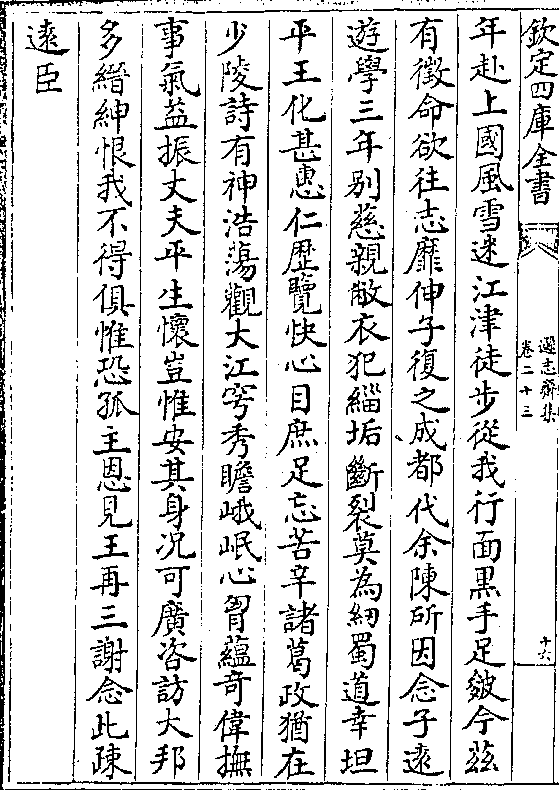 欽定四庫全書
遜志齋集
卷二十三
十六
年赴上國風雪迷江津徒步從我行面黒手足皴今兹
有徵命欲往志靡伸子復之成都代余陳所因念子逺
遊學三年别慈親敝衣犯緇垢斷裂莫為紉蜀道幸坦
平王化甚惠仁歴覽快心目庶足忘苦辛諸葛政猶在
少陵詩有神浩蕩觀大江穹秀瞻峨岷心胷藴奇偉撫
事氣益振丈夫平生懷豈惟安其身况可廣咨訪大邦
多縉紳恨我不得俱惟恐孤主恩見王再三謝念此疎
逺臣